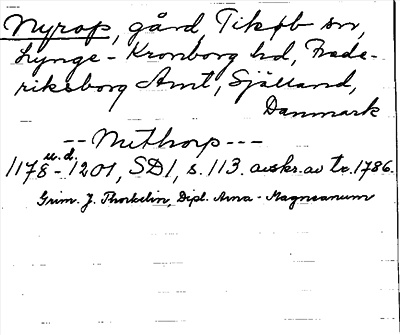 Nyrop, gård, Tikøb sn,
Lynge - Kronborg hd, Frede-
riksborg Amt, Själland,
Danmark
-- Nuthorp ---
u.d.
1178 - 1201, SD1, s. 113. avskr. av tr. 1786.
Grim. J. Thorkelin, Dipl. Arna - Magnæanum